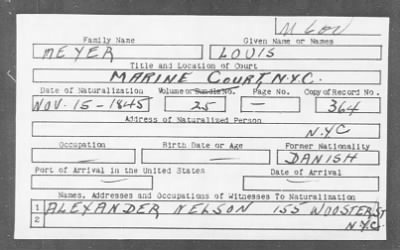 Family Name Given Name or Names
MEYER LOUIS
Title and Location of Court
MARINE COURT, N.Y.C.
Date of Naturalization Volume or Bundle No. Page No. Copy of Record No.
NOV. 15-1845 25 — 364
Address of Naturalized Person
N.Y.C
Occupation Birth Date or Age Former Nationality
— — DANISH
Port of Arrival in the United States Date of Arrival
— —
Names, Addresses and Occupations of Witnesses To Naturalization
1 ALEXANDER NELSON 155 WOOSTER ST
2 N.Y.C.